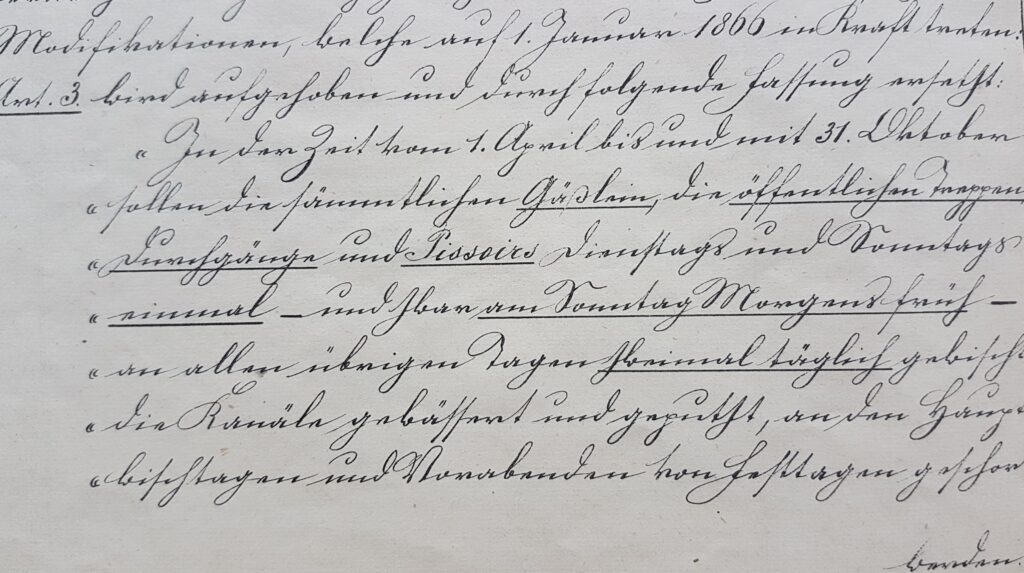 Modifikationen, welche auf 1. Januar 1866 in Kraft treten:
Art. 3. wird aufgehoben und durch folgende Fassung ersetzt:
„ In der Zeit vom 1. April bis und mit 31. Oktober
„ sollen die sämmtlichen Gäßlein, die öffentlichen Treppen,
„ Durchgänge und Pissoirs Dienstags und Sonntags
„ einmal – und zwar am Sonntag Morgens früh –
„ an allen übrigen Tagen zweimal täglich gewischt
„ die Kanäle gewässert und geputzt, an den Haupt
„ wischtagen und Vorabenden von Festtagen geschor
werden.